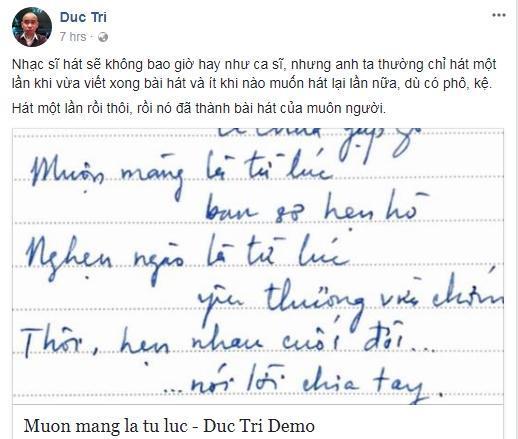 Duc Tri
7 hrs
Nhạc sĩ hát sẽ không bao giờ hay như ca sĩ, nhưng anh ta thường chỉ hát một
lần khi vừa viết xong bài hát và ít khi nào muốn hát lại lần nữa, dù có phô, kệ.
Hát một lần rồi thôi, rồi nó đã thành bài hát của muôn người.
gặp gỡ
Muộn màng là từ lúc
ban sơ hẹn hò
Nghẹn ngào là từ lúc
yêu thương vừa chớm
Thôi, hẹn nhau cuối đời...
...nói lời chia tay.
Muon mang la tu luc - Duc Tri Demo